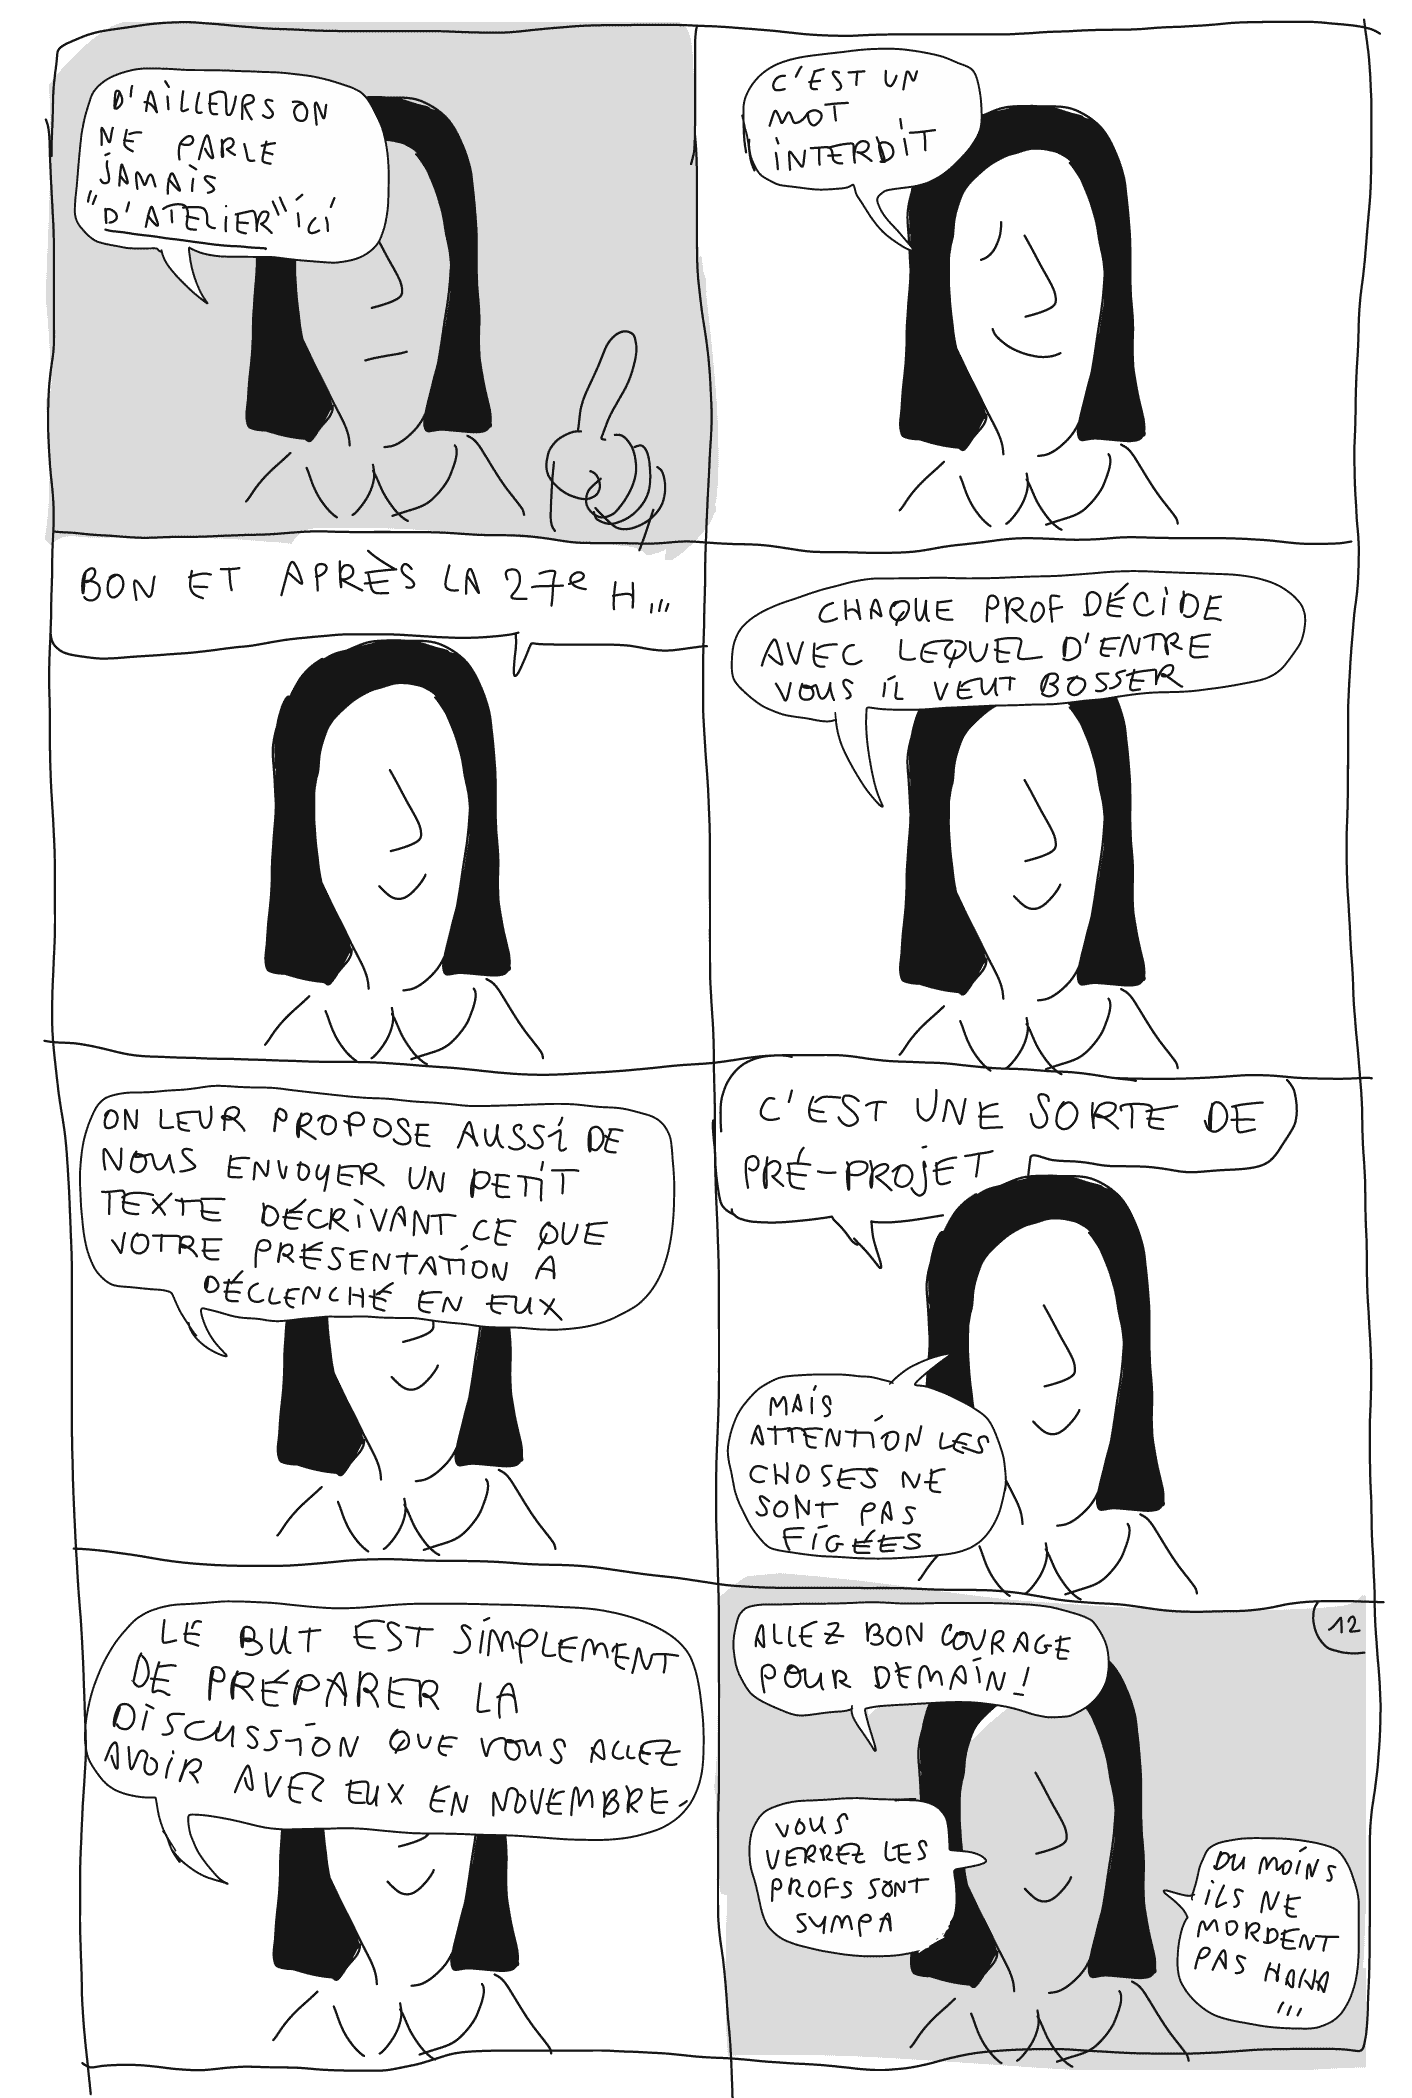 D'AILLEURS ON
NE PARLE
JAMAIS
"D'ATELIER" ICI
C'EST UN
MOT
INTERDIT
BON ET APRÈS LA 27e H...
CHAQUE PROF DÉCIDE
AVEC LEQUEL D'ENTRE
VOUS IL VEUT BOSSER
ON LEUR PROPOSE AUSSI DE
NOUS ENVOYER UN PETIT
TEXTE DÉCRIVANT CE QUE
VOTRE PRÉSENTATION A
DÉCLENCHÉ EN EUX
C'EST UNE SORTE DE
PRÉ-PROJET
MAIS
ATTENTION LES
CHOSES NE
SONT PAS
FIGÉES
LE BUT EST SIMPLEMENT
DE PRÉPARER LA
DISCUSSION QUE VOUS ALLEZ
AVOIR AVEC EUX EN NOVEMBRE.
12
ALLEZ BON COURAGE
POUR DEMAIN!
VOUS
VERREZ LES
PROFS SONT
SYMPA
DU MOINS
ILS NE
MORDENT
PAS HAHA
!!!